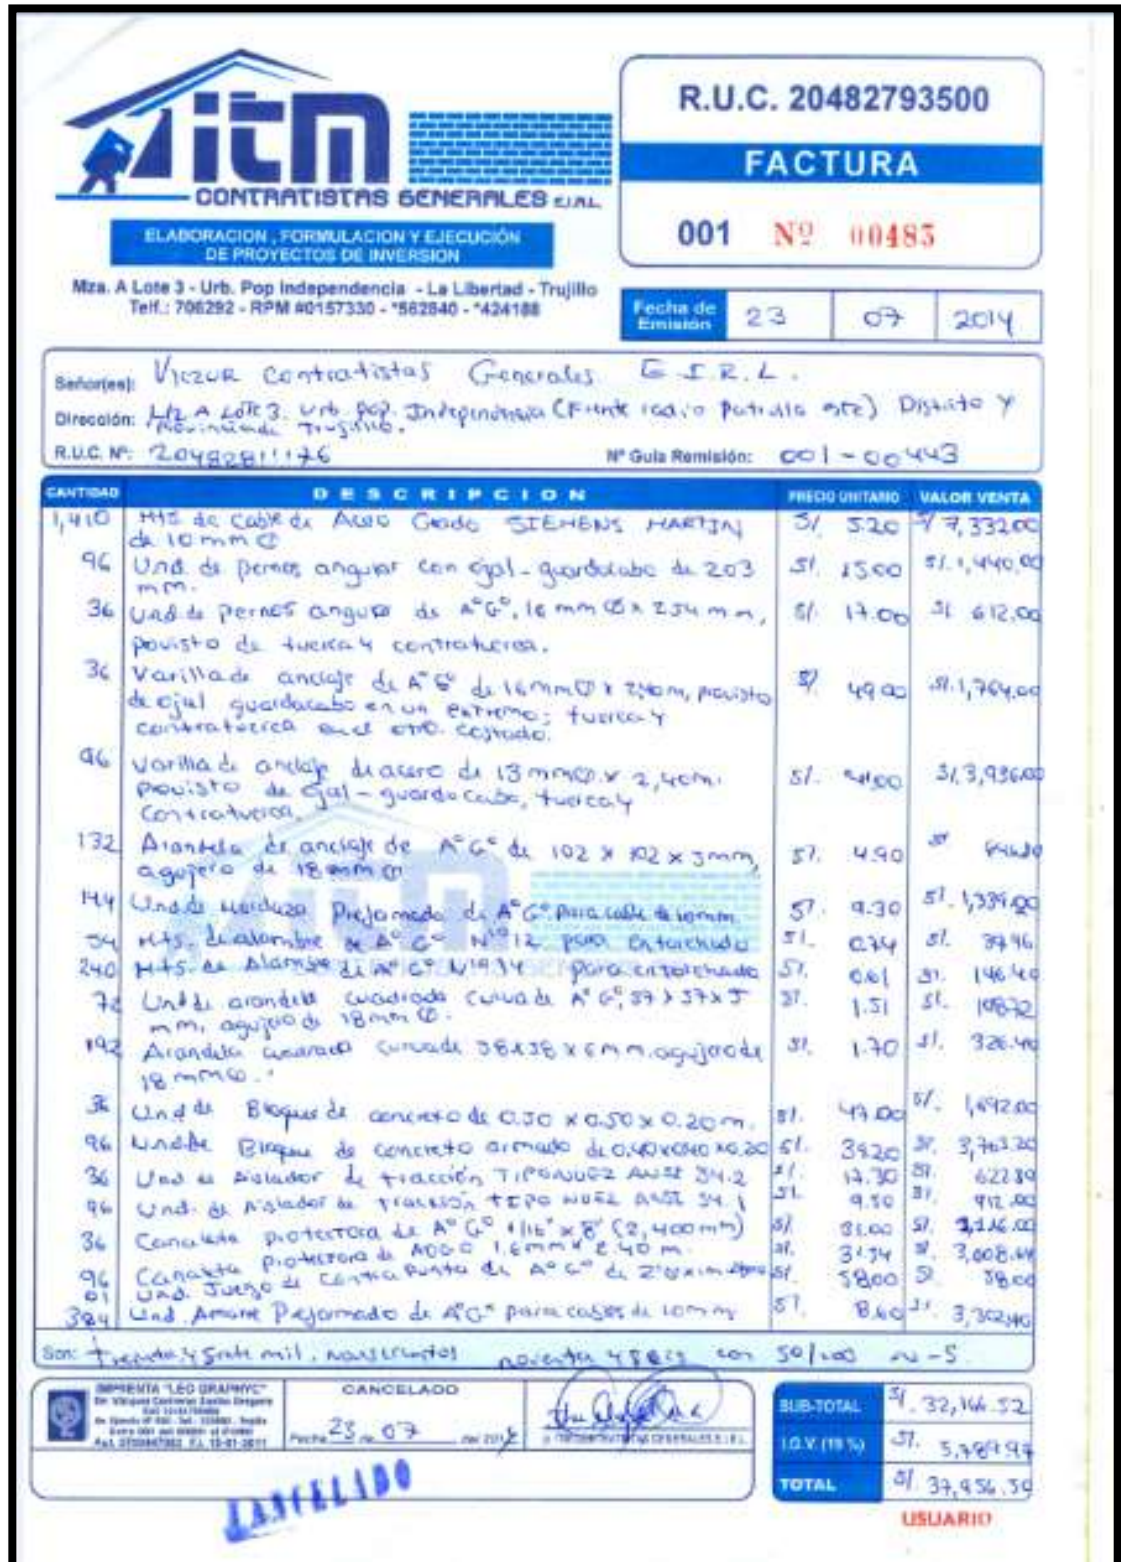 itm
CONTRATISTAS GENERALES E.I.R.L.
ELABORACION , FORMULACION Y EJECUCIÓN
DE PROYECTOS DE INVERSION
Mza. A Lote 3 - Urb. Pop Independencia - La Libertad - Trujillo
Telf.: 706292 - RPM #0157330 - *562840 - *424188
R.U.C. 20482793500
FACTURA
001 Nº 00485
Fecha de Emisión 23 07 2014
Señor(es): Contratistas Generales E.I.R.L.
Dirección: Mz A Lote 3. Urb. Pop. Independencia (Frente radio patrulla este) Distrito y
Provincia de Trujillo.
R.U.C. Nº: 20482811176 Nº Guia Remisión: 001-00443
CANTIDAD DESCRIPCION PRECIO UNITARIO VALOR VENTA
1,410 Mts de Cable de Acero Grado SIEMENS MARTIN S/. 5.20 S/ 7,332.00
de 10 mm Ø
96 Und. de pernos angular con ojal-guardacabo de 203 S/. 15.00 S/. 1,440.00
mm.
36 Und de pernos angular de A°G°, 16 mm Ø x 254 mm, S/. 17.00 S/. 612.00
povisto de tuerca y contratuerca.
36 Varilla de anclaje de A°G° de 16mmØ x 2,40m, provisto S/. 49.00 S/. 1,764.00
de ojal guardacabo en un extremo; tuerca y
contratuerca en el otro costado.
96 Varilla de anclaje de acero de 13 mmØ x 2,40m. S/. 41.00 S/. 3,936.00
provisto de ojal-guardacabo, tuerca y
Contratuerca.
132 Arandela de anclaje de A°G° de 102 x 102 x 5mm, S/. 4.90 S/
agujero de 18 mm Ø
144 Und. de Preformado de A°G° para cable de 10mm. S/. 9.30 S/. 1,339.20
54 Mts. de alambre de A°G° N° 12 para entorchado S/. 0.74 S/. 39.96
240 Mts. de Alambre de A°G° Nº 14 para entorchado S/. 0.61 S/. 146.40
72 Und de arandela cuadrada curva de A°G°, 57 x 57 x 5 S/. 1.51 S/. 108.72
mm. agujero de 18mm Ø.
192 Arandela cuadrada curva de 38x38 x 6mm. agujero de S/. 1.70 S/. 326.40
18 mm Ø.
36 Und de Bloque de concreto de 0.50 x 0.50 x 0.20 m. S/. 47.00 S/. 1,692.00
96 Und de Bloque de concreto armado de 0.40x0.40x0.20 S/. 39.20 S/. 3,763.20
36 Und de Aislador de tracción TIPO NUEZ ANSI 54.2 S/. 17.30 S/. 622.80
96 Und. de Aislador de tracción TIPO NUEZ ANSI 54.1 S/. 9.50 S/. 912.00
36 Canaleta protectora de A°G° 1/16" x 8' (2,400mm) S/. 31.00 S/.
96 Canaleta protectora de A°G° 1.6mm x 2.40 m. S/. 31.34 S/. 3,008.64
01 Und. Juego de Contra Punta de A°G° de S/. 58.00 S/. 58.00
384 Und. Amarre Preformado de A°G° para cables de 10mm S/. 8.60 S/. 3,302.40
Son: Treinta y Siete mil, novecientos y seis con 50/100 nu-S.
IMPRENTA "LEO GRAPHYC"
CANCELADO
Fecha 23 07 2014
CANCELADO
SUB-TOTAL S/. 32,166.52
I.G.V. (18 %) S/. 5,789.97
TOTAL S/. 37,956.50
USUARIO